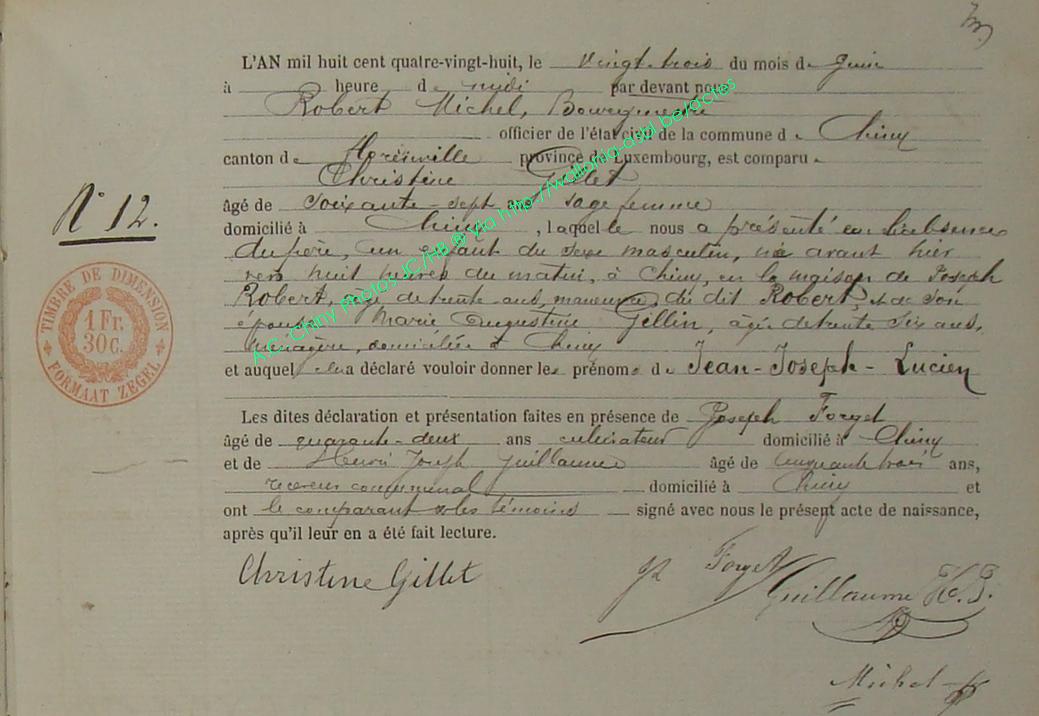 L'AN mil huit cent quatre-vingt-huit, le vingt-trois du mois de Juin
à heure de midi par devant nous
Robert Michel, Bourgmestre
officier de l'état civil de la commune de Chiny
canton de Florenville province de Luxembourg, est comparue
Christine Gillet
N° 12.
âgé de soixante-sept ans sage femme
domicilié à Chiny, laquelle nous a présenté en l'absence
du père, un enfant du sexe masculin, né avant hier
vers huit heures du matin, à Chiny, en la maison de Joseph
Robert, âgé de trente ans, manœuvre, du dit Robert, et de son
épouse Marie Augustine Gellin, âgée de trente six ans,
ménagère, domiciliée à Chiny
et auquel elle a déclaré vouloir donner les prénoms de Jean-Joseph-Lucien
Les dites déclaration et présentation faites en présence de Joseph Forget
âgé de quarante-deux ans cultivateur domicilié à Chiny
et de Henri Joseph Guillaume âgé de cinquante trois ans,
receveur communal domicilié à Chiny et
ont le comparant & les témoins signé avec nous le présent acte de naissance,
après qu'il leur en a été fait lecture.
Christine Gillet
Forget
Guillaume H. J.
Michel
TIMBRE DE DIMENSION
1 Fr.
30 C.
FORMAAT ZEGEL
A.C. Chiny Photos JC/HB @ Via http://wallonia-asbl.be/actes